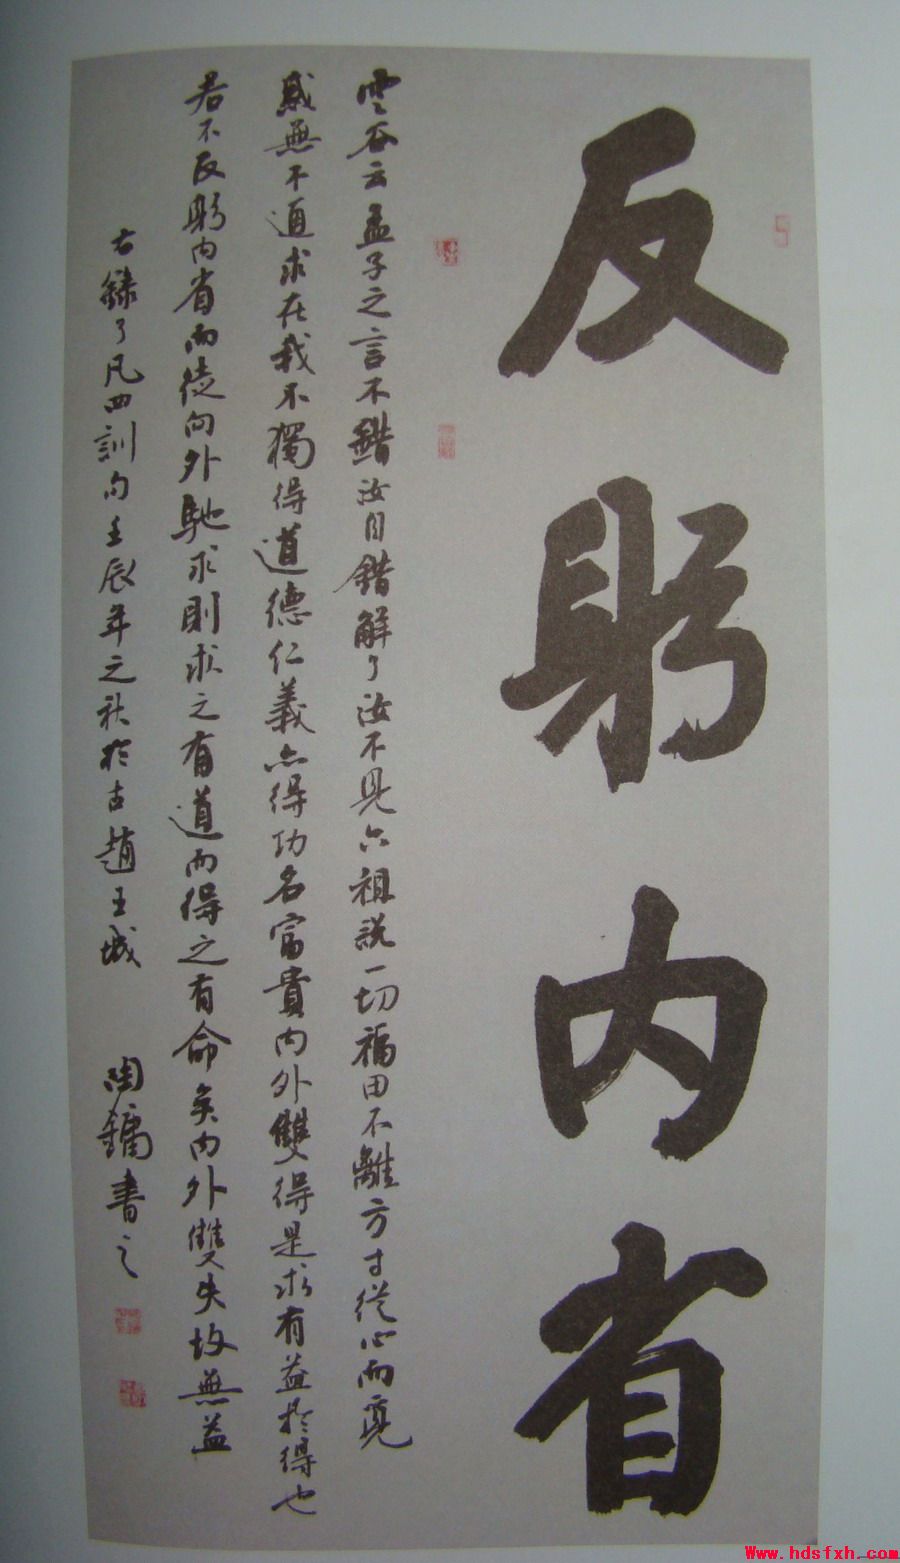 反躬内省
雲谷云孟子之言不錯汝自錯解了汝不見六祖説一切福田不離方寸從心而覓
感無不通求在我不獨得道德仁義亦得功名富貴内外雙得是求有益於得也
若不反躬内省而徒向外馳求則求之有道而得之有命矣内外雙失故無益
右録了凡四訓句壬辰年之秋於古趙王城
陶鏞書之
Www.hdsfxh.com